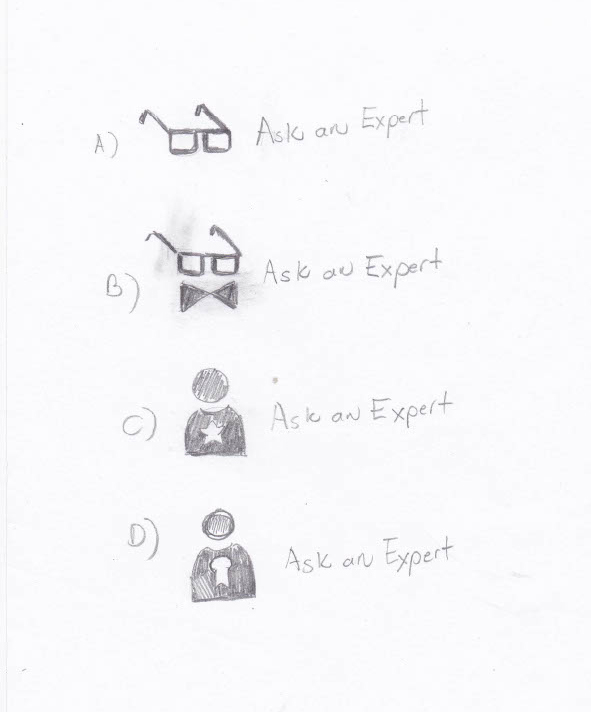 A) Ask an Expert
B) Ask an Expert
C) Ask an Expert
D) Ask an Expert